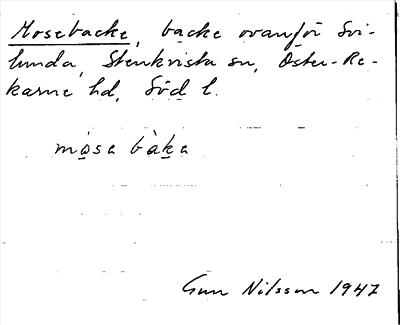 Mosebacke, backe ovanför Svi-
lunda, Stenkvista sn, Öster-Re-
karne hd, Söd l.
mosa bàka
Gun Nilsson 1947